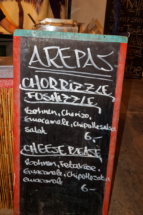 AREPAS
CHORRIZZLE
FOSHIZZLE
Bohnen, Chorizo,
Guacamole, Chipotlesalsa
Salat
6,-
CHEESE PLEASE
Bohnen, Fetakäse,
Guacamole, Chipotlesalsa
6,-